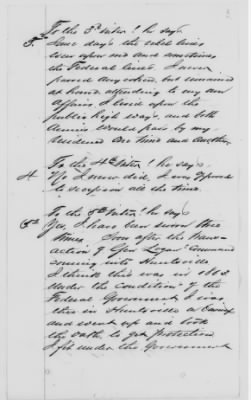 3
To the 3rd Inter! he says
3 Some days the rebel lines
were upon me and sometimes
the Federal lines. I never
passed anywhere, but remained
at home attending to my own
affairs. I lived upon the
public high ways, and both
Armies would pass by my
residence one time and another.
To the 4th Inter! he says
4 No I never did. I was opposed
to secession all the time.
To the 5th Inter! he says
5th Yes, I have been sworn
times. Soon after the
of Genl Logan Command
coming into Huntsville
I think this was in 186
under the condition of the
Federal Government, I was
then in Huntsville
and went up and took
the oath, to get protection
I felt under the Government